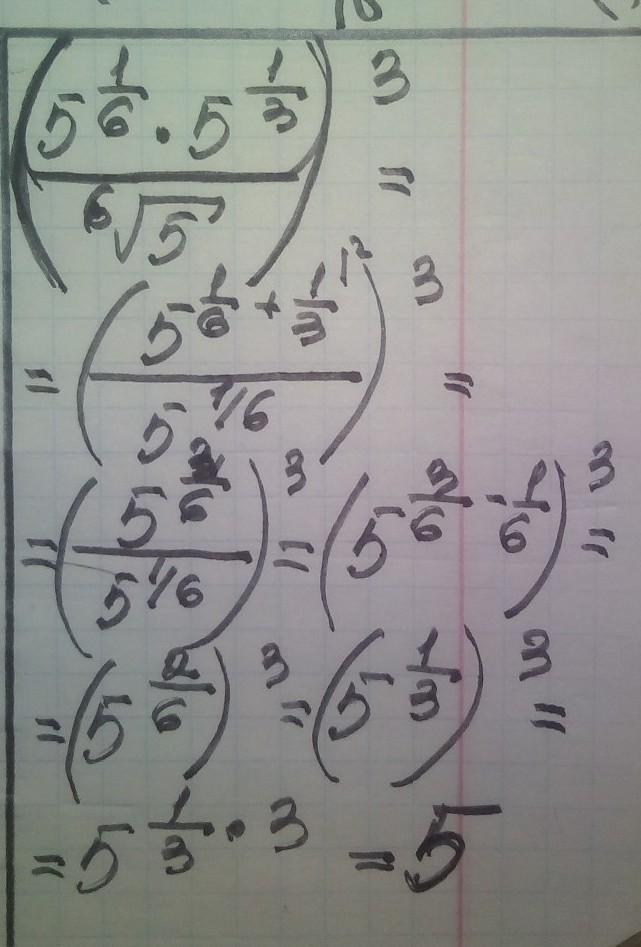 (5^{1/6} · 5^{1/3} / ⁶√5)^3 =
= (5^{1/6 + 1/3^{\2}} / 5^{1/6})^3 =
= (5^{3/6} / 5^{1/6})^3 = (5^{3/6 - 1/6})^3 =
= (5^{2/6})^3 = (5^{1/3})^3 =
= 5^{1/3 · 3} = 5